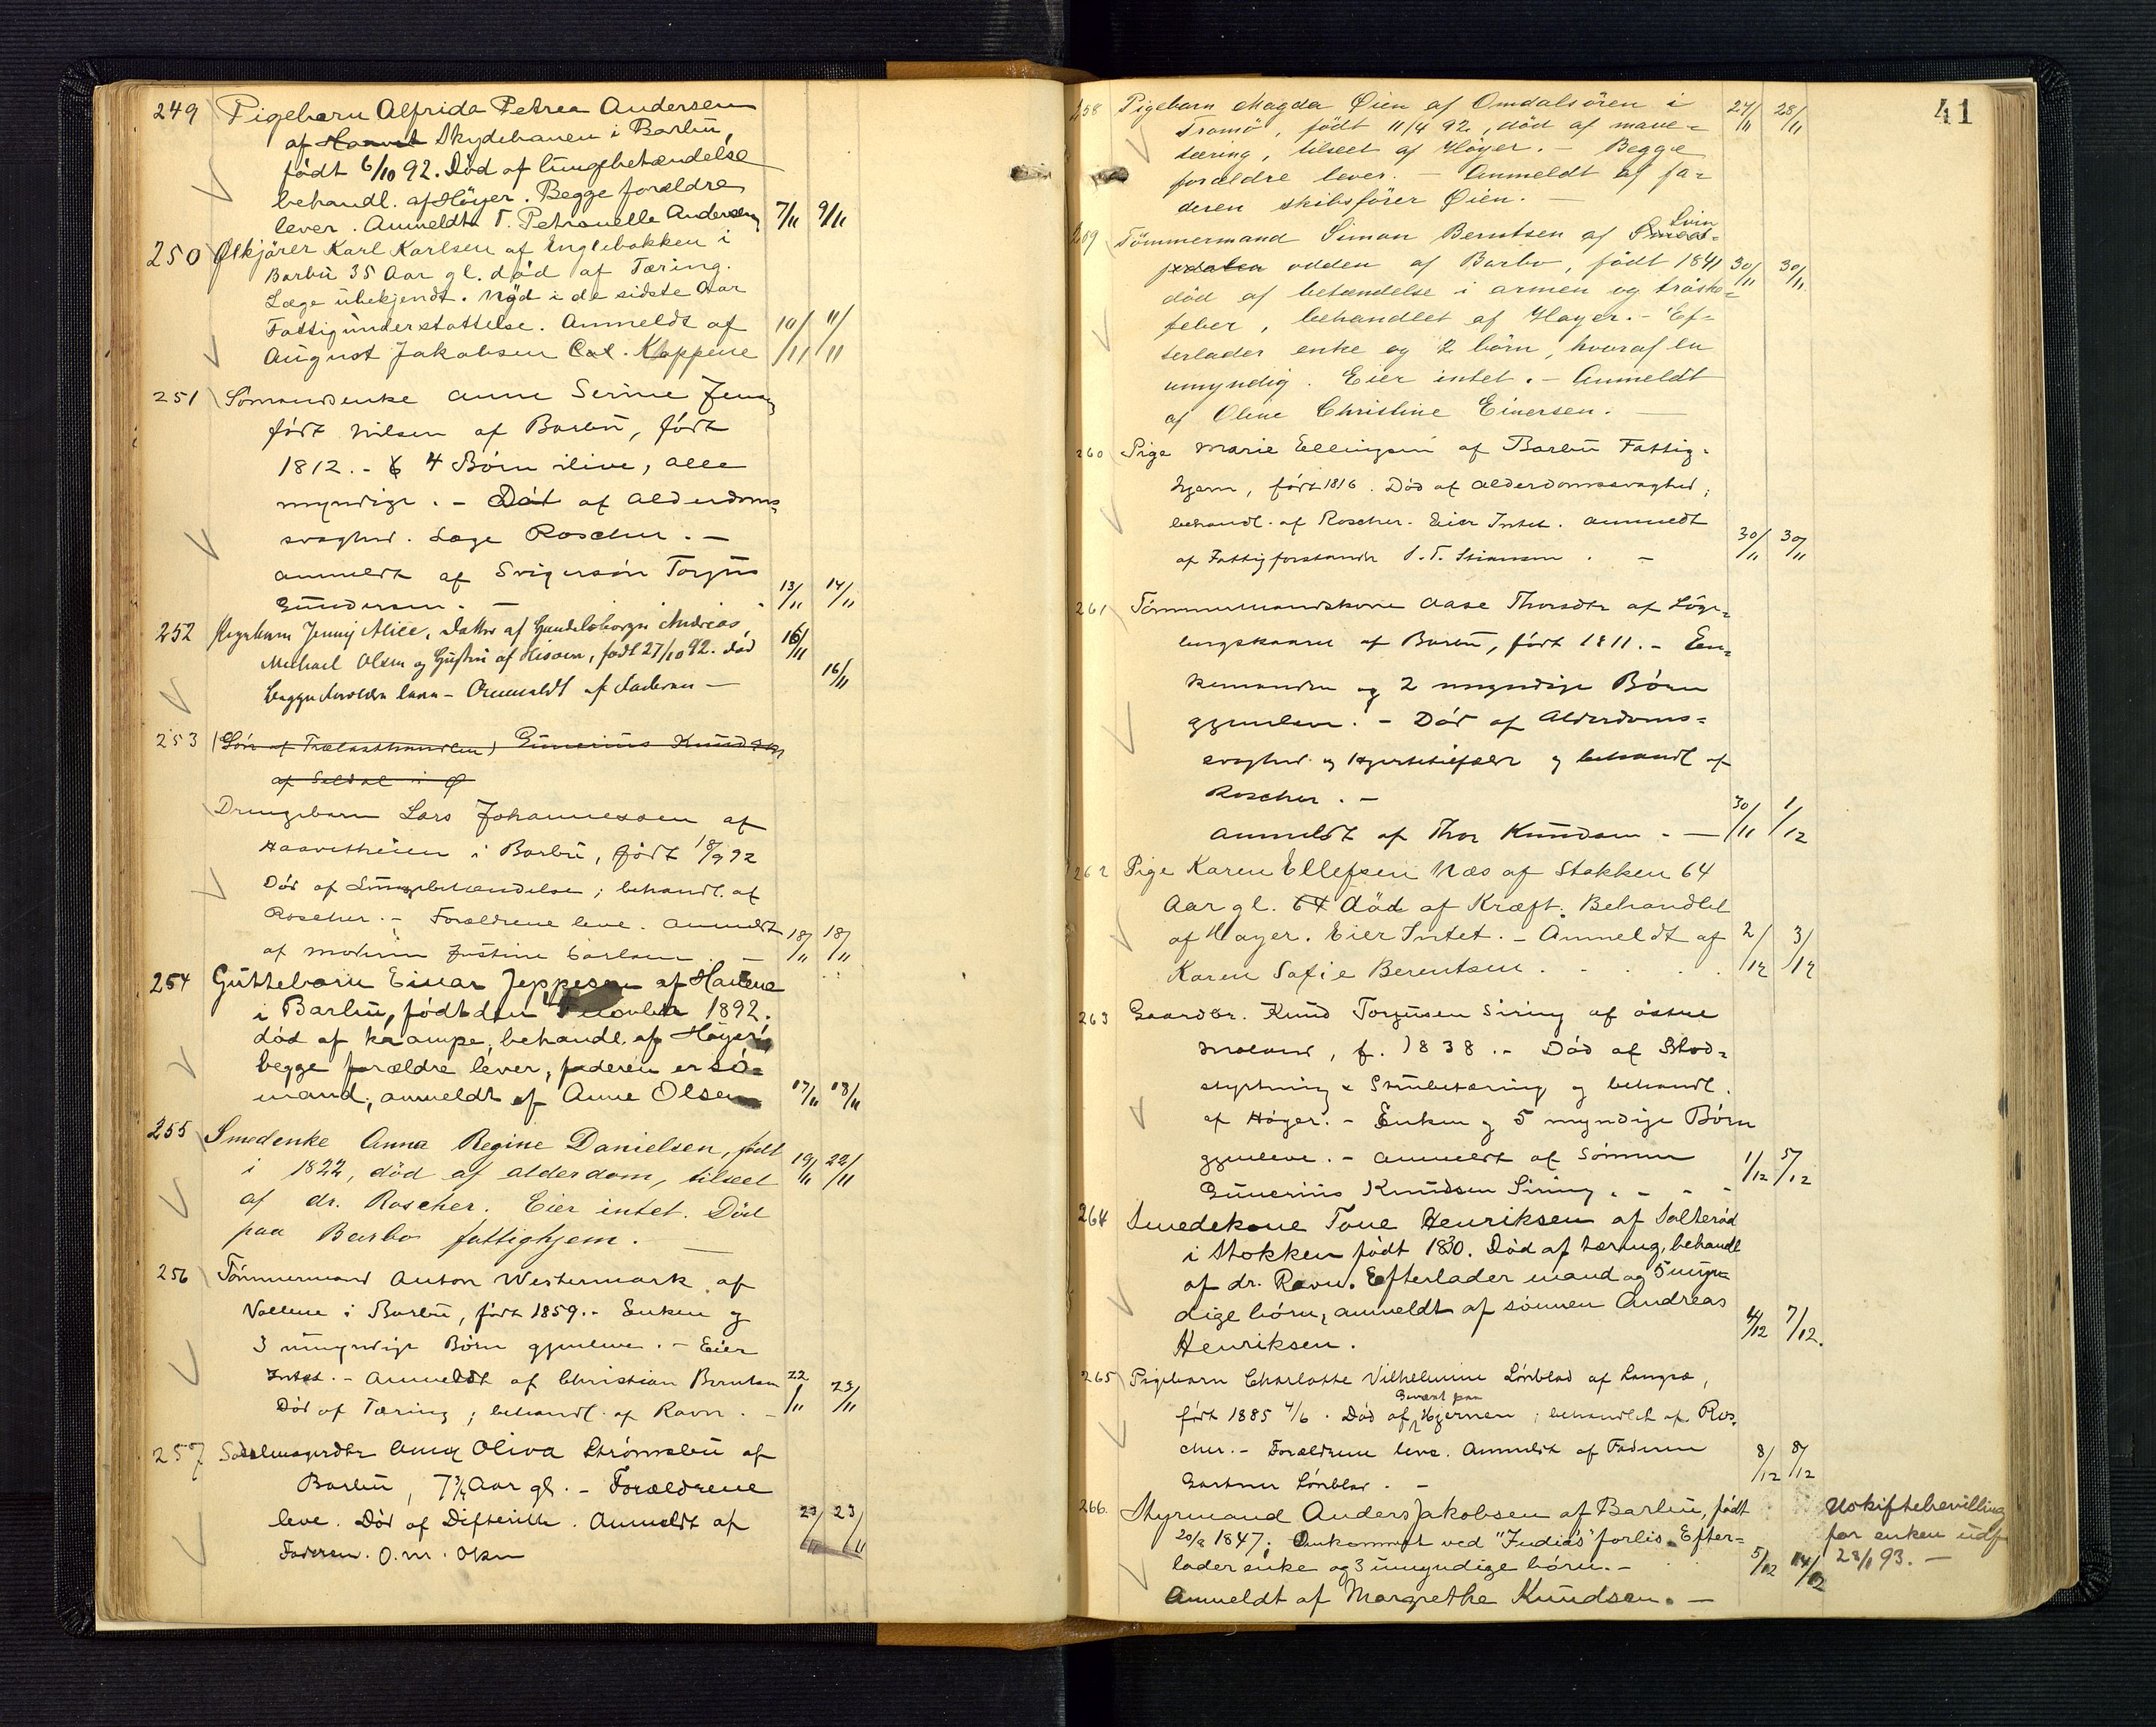 249 Pigebarn Alfrida Petrea Andersen
af Haavet Skydebanen i Barbu,
født 6/10 92. Død af lungebetændelse
behandl. af Höyer. Begge forældre
lever. Anmeldt T. Petronelle Andersen 7/11 9/11
250 Ølkjörer Karl Karlsen af Englebakken i
Barbu 35 Aar gl. død af Tæring.
Læge ubekjendt. Nød i de sidste Aar
Fattigunderstøttelse. Anmeldt af
August Jakobsen Kloppene 10/11 11/11
251 Sömandsenke Anne Serine Jens
født Nilsen af Barbu, født
1812. - 6 4 Børn ilive, alle
myndige. - Død af Alderdoms=
svaghed. Læge Roscher. -
anmeldt af Svigersön Torjus
Gundersen. - 13/11 14/11
252 Pigebarn Jenny Alice, datter af Andreas 16/11
Michael Olsen og Hustru af Hisöen, født 27/10 92. død
begge forældre leve - Anmeldt af Faderen - 16/11
253 (Sön af Trælasthandler) Gunerius Knudsen
af Saldal i Ø
Drengebarn Lars Johannessen af
Haavetheien i Barbu, født 18/9 92
Død af Lungebetændelse; behandl. af
Roscher. - Forældrene leve. anmeldt
af moderen Justine Carlsen. - 18/11 18/11
254 Guttebarn Einar Jeppesen af
i Barbu, født den 1892.
død af krampe, behandl. af Höyer,
begge forældre lever, faderen er sö=
mand; anmeldt af Anne Olsen 17/11 18/11
255 Smedenke Anna Regine Danielsen, født
i 1822, død af alderdom, tilseet 19/11 22/11
af dr. Roscher. Eier intet. Död
paa Barbo fattighjem. -
256 Tömmermand Anton Westermark af
Vollene i Barbu, født 1859. - Enken og
3 umyndige Børn gjenleve. - Eier
Intet. - Anmeldt af Christian Berntsen 22/11
Død af Tæring; behandl. af Ravn. - 23/11
257 Anna Oliva Strømsbu af
Barbu, 7 3/4 Aar gl. - Forældrene
leve. Død af Difteritis. Anmeldt af 23/11 23/11
Faderen. O. M. Olsen
41
258 Pigebarn Magda Øien af Omdalsören i 27/11 28/11
Tromö, født 11/4 92, död af mave=
tæring, tilseet af Höyer. - Begge
forældre lever. - Anmeldt af fa=
deren skibsförer Øien. -
259 Tömmermand Simon Berntsen af Svin
odden af Barbo, født 1841 30/11 30/11
död af betændelse i armen og tröske=
feber, behandlet af Høyer. - Ef=
terlader enke og 2 börn, hvoraf en
umyndig. Eier intet. - Anmeldt
af Oline Christine Einersen. -
260 Pige Marie Ellingsen af Barbu Fattig=
hjem, født 1816. Død af Alderdomssvaghed;
behandl. af Roscher. Eier Intet. anmeldt
af Fattigforstander S. T. Stiansen. - 30/11 30/11
261 Tömmermandskone Aase Thorsdtr af
af Barbu, født 1811. - En=
kemanden og 2 myndige Børn
gjenleve. - Død af Alderdoms=
svaghed og Hjertetilfælde og behandl af
Roscher. -
anmeldt af Thor Knudsen. - 30/11 1/12
262 Pige Karen Ellefsen Næs af Stokken 64
Aar gl. 64 död af Kræft. Behandlet
af Høyer. Eier Intet. - Anmeldt af 2/12 3/12
Karen Sofie Berentsen . . . .
263 Gaardbr. Knud Torjusen Siring af östre
Moland, f. 1838. - Død af Blod=
styrtning & Strubetæring og behandl.
af Höyer. - Enken og 5 myndige Börn
gjenleve. - anmeldt af Sönnen 1/12 5/12
Gunerius Knudsen Siring. - - -
264 Smedekone Tone Henriksen af Solteröd
i Stokken født 1830. Død af tæring, behandl
af dr. Ravn. Efterlader mand og 5 myn=
dige börn, anmeldt af sönnen Andreas
Henriksen. 4/12 7/12.
265 Pigebarn Charlotte Vilhelmine Lönblad af Langsæ,
Svamp paa
født 1885 4/6. Død af Hjernen; behandlet af Ros=
cher. - Forældrene leve. Anmeldt af Faderen
Gartner Lönblad. - 8/12 8/12
266. Styrmand Anders Jakobsen af Barbu, født
20/8 1847; Omkommet ved "India's" forlis. Efter=
lader enke og 3 umyndige börn. - 5/12 14/12
Anmeldt af Margrethe Knudsen. -
Uskiftebevilling
for enken udf
28/1 93. -